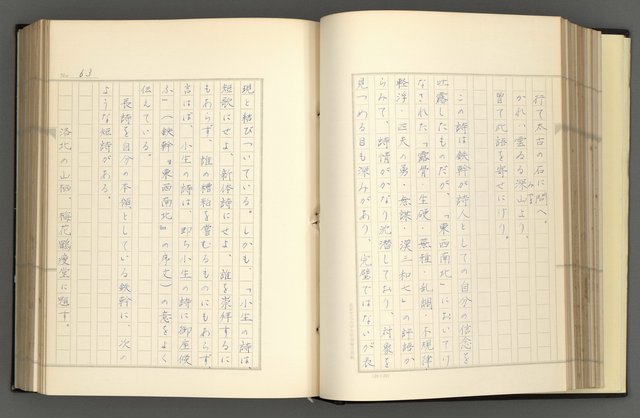 行て太古の石に問へ。
かれ、雲ゐる深山より、
嘗て此語を寄せにけり。
この詩は鉄幹が詩人としての自分の信念を
吐露したものだが、「東西南北」においてけ
なされた「露骨、生硬、蕪雑、乱調、不規律
軽浮、匹夫の勇、無謀、漢三和七」の評語か
らみて、詩情がかなり沈潜しており、対象を
見つめる目も深みがあり、完璧ではないが長
No. 63
現と結びついている。しかも、「小生の詩は、
短歌にせよ、新体詩にせよ、誰を崇拝するに
もあらず、誰の糟粕を嘗むるものにもあらず、
言はば、小生の詩は、即ち小生の詩に御座候
ふ」(鉄幹『東西南北』の序文)の意をよく
伝えている。
長詩を自分の本領としている鉄幹に、次の
ような短詩がある。
洛北の山栖、梅花鶴痩堂に題す。